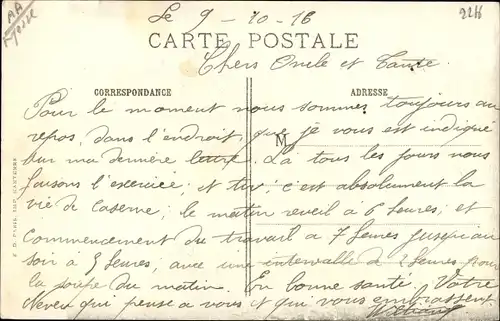 Le 9-10-16
2216
CARTE POSTALE
Chers Oncle et Tante.
CORRESPONDANCE
ADRESSE
M
Pour le moment nous sommes toujours au
repos, dans l'endroit, que je vous est indiqué
sur ma dernière lettre. Là tous les jours nous
faisons l'exercice; et tir; c'est absolument la
vie de caserne; le matin reveil à 6 heures; et
commencement du travail a 7 heures jusqu'au
soir à 5 heures, avec une intervalle de 2 heures pour
la soupe du matin. En bonne santé. Votre
Neveu qui pense a vous et qui vous embrassent.